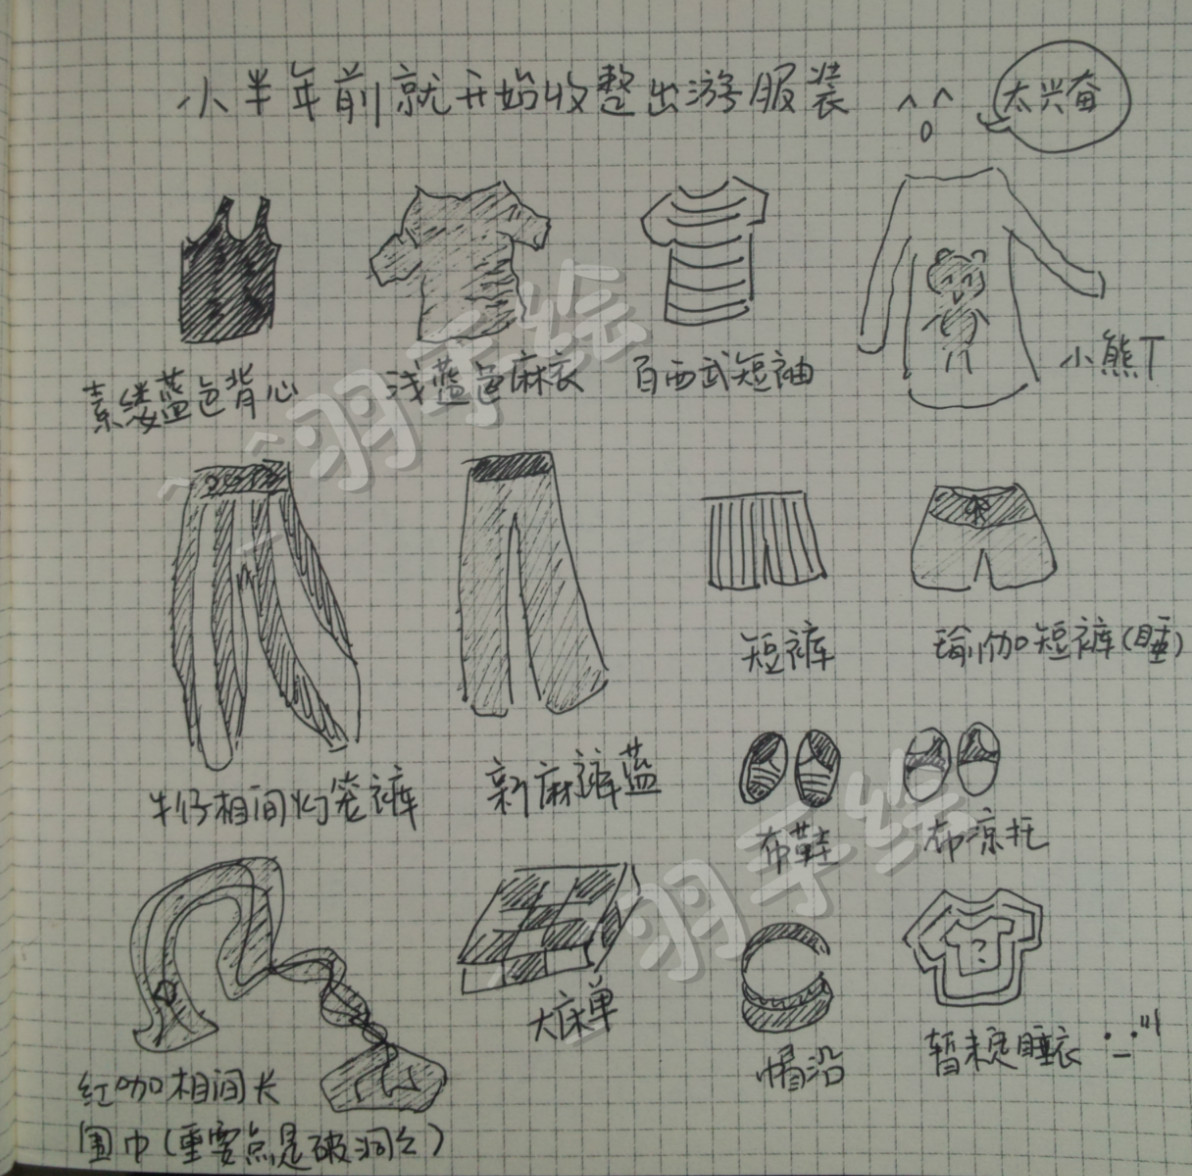 小半年前就开始收整出游服装
太兴奋
素缕蓝色背心
浅蓝色麻衣
百西武短袖
小熊T
短裤
瑜伽短裤(睡)
牛仔相间灯笼裤
新麻裤蓝
布鞋
布凉托
大床单
帽沿
暂未定睡衣
红咖相间长
围巾(重要点是破洞么)
羽手绘
羽手绘